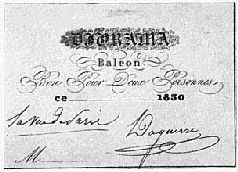 DIORAMA
Balcon
Bon Pour Deux Personnes
ce 1830
Daguerre
M